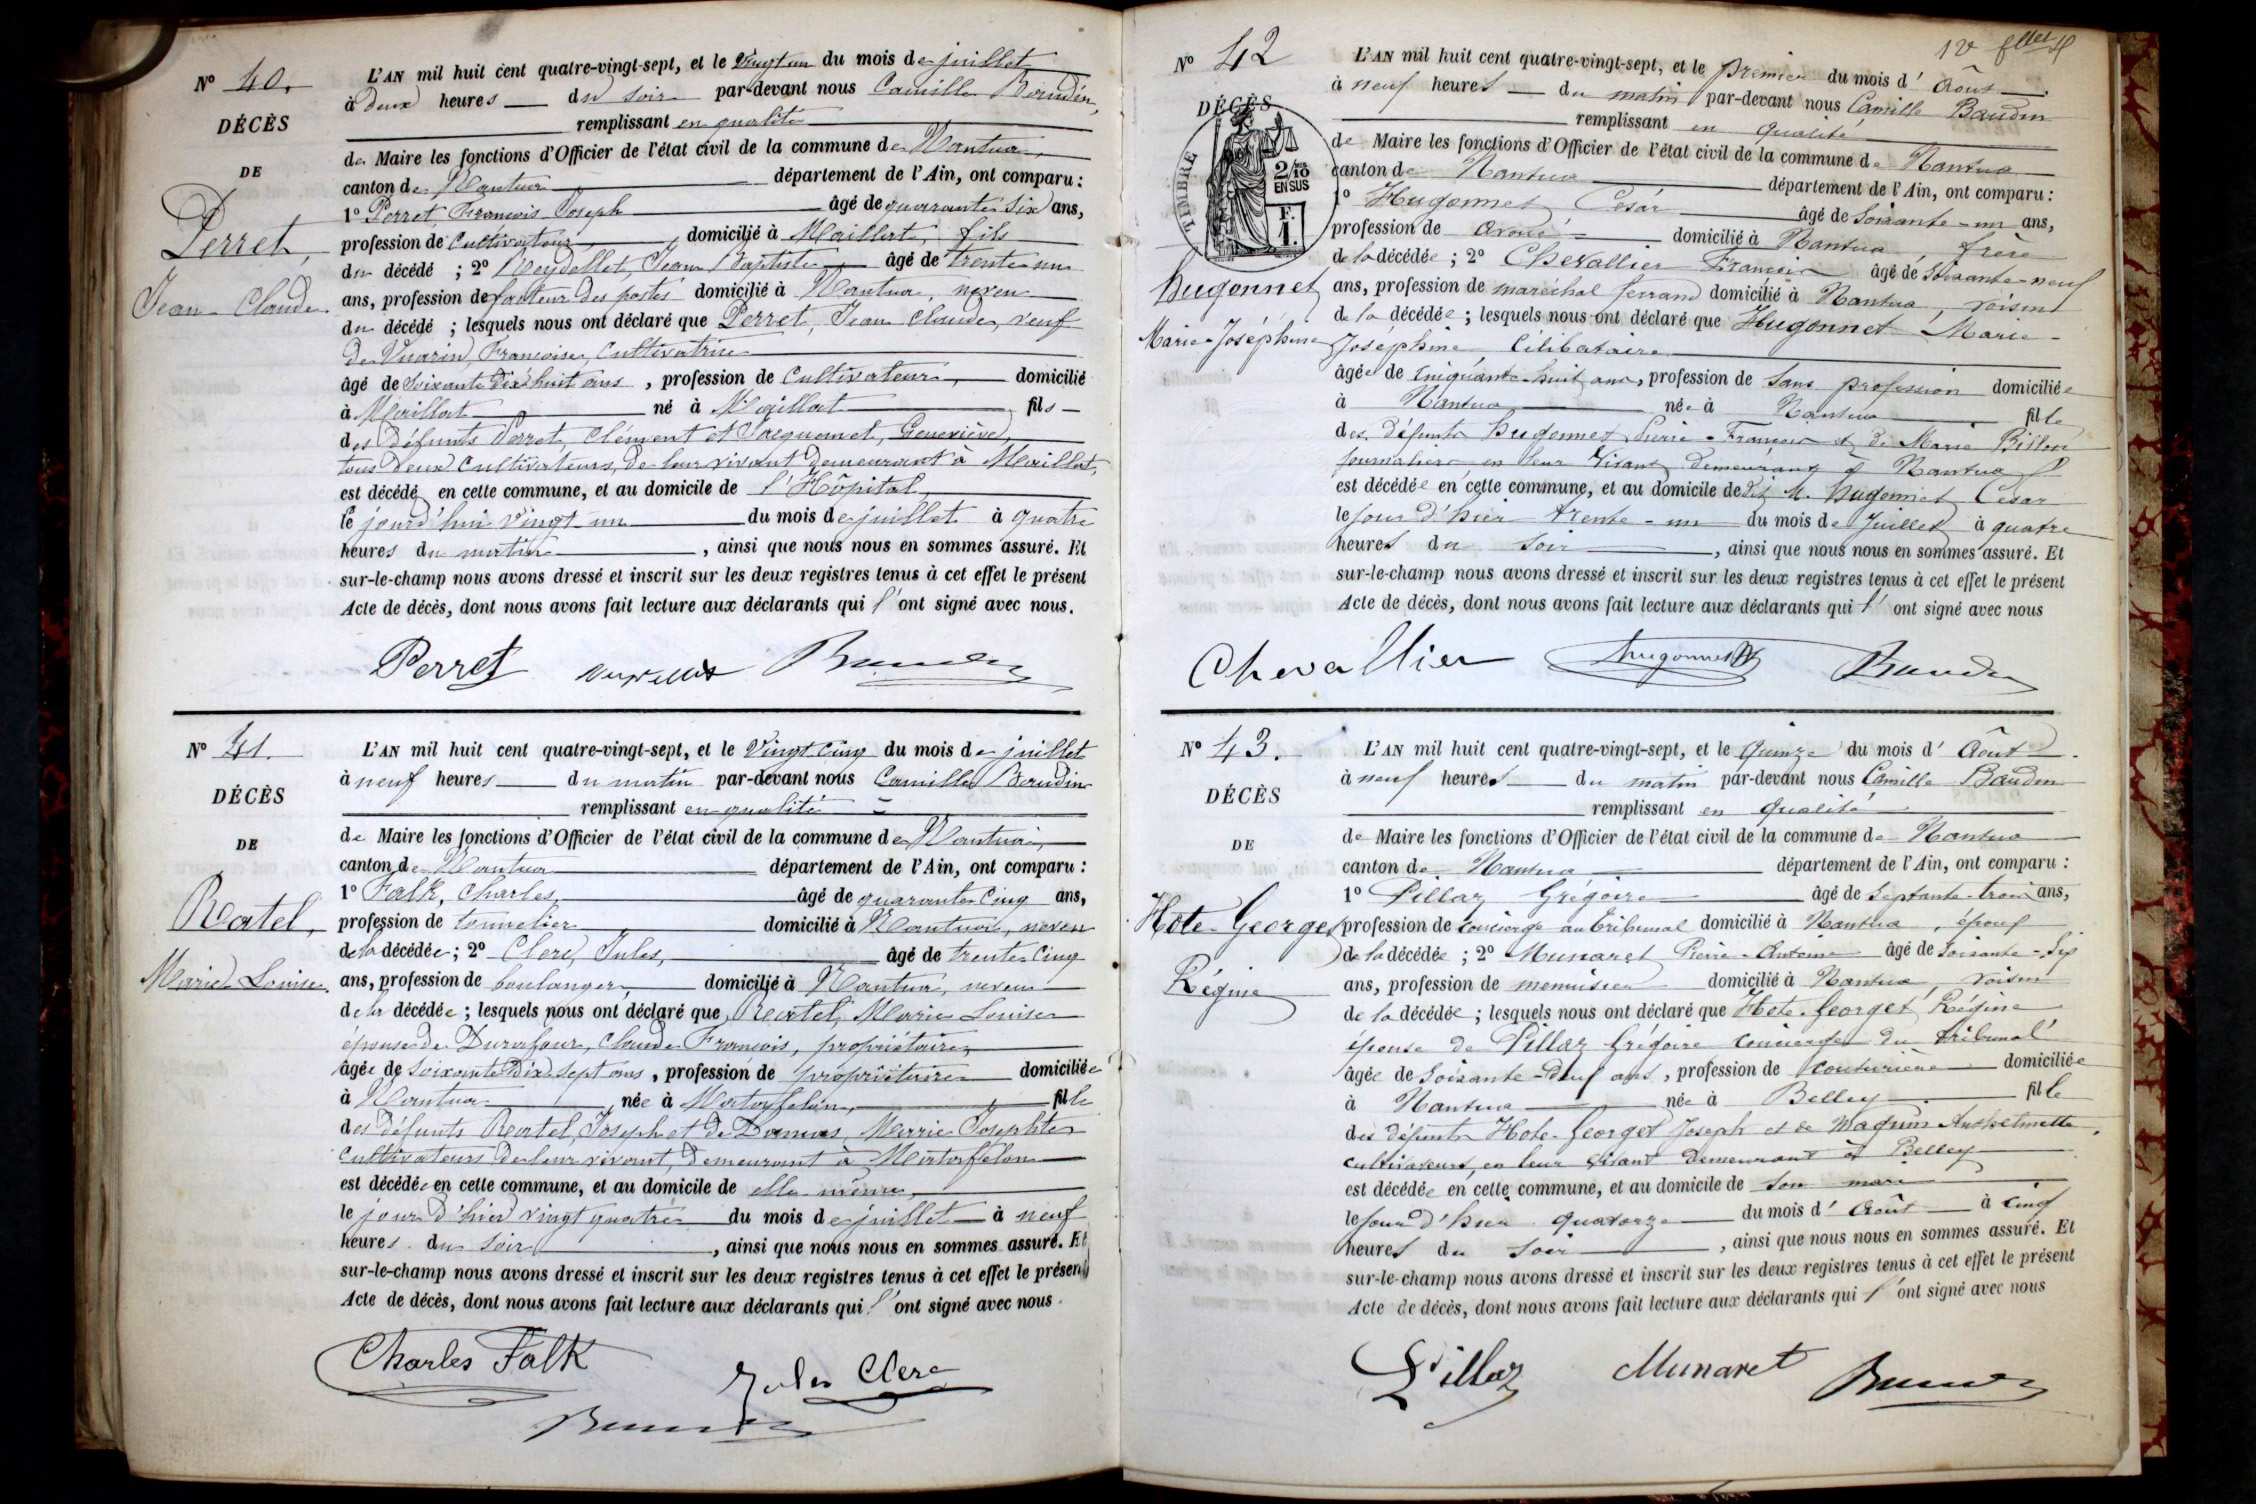 N° 40.
DÉCÈS
DE
Perret,
Jean-Claude
L'AN mil huit cent quatre-vingt-sept, et le Vingt un du mois de juillet
à deux heures du soir par-devant nous Camille Baudin,
remplissant en qualité
de Maire les fonctions d'Officier de l'état civil de la commune de Nantua,
canton de Nantua département de l'Ain, ont comparu :
1° Perret, François Joseph âgé de quarante six ans,
profession de Cultivateur, domicilié à Maillat, fils
du décédé ; 2° Neydellet, Jean Baptiste, âgé de trente un
ans, profession de facteur des postes domicilié à Nantua, neveu
du décédé ; lesquels nous ont déclaré que Perret, Jean Claude, veuf
de Vuarin, Françoise, Cultivatrice
âgé de soixante dix huit ans, profession de Cultivateur, domicilié
à Maillat né à Maillat fils
des défunts Perret, Clément et Jacquemet, Geneviève,
tous deux Cultivateurs, de leur vivant demeurant à Maillat,
est décédé en cette commune, et au domicile de l'Hôpital
le jourd'hui vingt-un du mois de juillet à quatre
heures du matin, ainsi que nous nous en sommes assuré. Et
sur-le-champ nous avons dressé et inscrit sur les deux registres tenus à cet effet le présent
Acte de décès, dont nous avons fait lecture aux déclarants qui l'ont signé avec nous.
Perret Baudin
N° 41.
DÉCÈS
DE
Ratel,
Marie Louise.
L'AN mil huit cent quatre-vingt-sept, et le Vingt cinq du mois de juillet
à neuf heures du matin par-devant nous Camille Baudin
remplissant en qualité
de Maire les fonctions d'Officier de l'état civil de la commune de Nantua,
canton de Nantua département de l'Ain, ont comparu :
1° Falk, Charles, âgé de quarante cinq ans,
profession de tonnelier domicilié à Nantua, neveu
de la décédée ; 2° Clerc, Jules, âgé de trente cinq
ans, profession de boulanger, domicilié à Nantua, neveu
de la décédée ; lesquels nous ont déclaré que Ratel, Marie Louise
épouse de Durafour, Claude François, propriétaire,
âgée de soixante dix sept ans, profession de propriétaire domiciliée
à Nantua née à Matafelon, fille
des défunts Ratel, Joseph et de Damas, Marie Josephte
cultivateurs de leur vivant, demeurant à Matafelon
est décédée en cette commune, et au domicile de elle même,
le jour d'hier vingt quatre du mois de juillet à neuf
heures du soir, ainsi que nous nous en sommes assuré. Et
sur-le-champ nous avons dressé et inscrit sur les deux registres tenus à cet effet le présent
Acte de décès, dont nous avons fait lecture aux déclarants qui l'ont signé avec nous.
Charles Falk Jules Clerc
Baudin
N° 42
DÉCÈS
TIMBRE
2/10
EN SUS
F.
1.
Hugonnet
Marie-Joséphine
L'AN mil huit cent quatre-vingt-sept, et le premier du mois d'Août
à neuf heures du matin par-devant nous Camille Baudin
remplissant en qualité
de Maire les fonctions d'Officier de l'état civil de la commune de Nantua
canton de Nantua département de l'Ain, ont comparu :
1° Hugonnet César âgé de soixante-un ans,
profession de avoué domicilié à Nantua, frère
de la décédée ; 2° Chevallier François âgé de soixante-neuf
ans, profession de maréchal ferrand domicilié à Nantua, voisin
de la décédée ; lesquels nous ont déclaré que Hugonnet Marie-
Joséphine Célibataire
âgée de cinquante-huit ans, profession de sans profession domiciliée
à Nantua née à Nantua fille
des défunts Hugonnet Pierre-François et de Marie
journaliers en leur vivant demeurant à Nantua
est décédée en cette commune, et au domicile de M. Hugonnet César
le jour d'hier trente-un du mois de Juillet à quatre
heures du soir, ainsi que nous nous en sommes assuré. Et
sur-le-champ nous avons dressé et inscrit sur les deux registres tenus à cet effet le présent
Acte de décès, dont nous avons fait lecture aux déclarants qui l'ont signé avec nous
Chevallier Hugonnet Baudin
N° 43.
DÉCÈS
DE
Hote-Georget
Régine
L'AN mil huit cent quatre-vingt-sept, et le Quinze du mois d'Août.
à neuf heures du matin par-devant nous Camille Baudin
remplissant en qualité
de Maire les fonctions d'Officier de l'état civil de la commune de Nantua
canton de Nantua département de l'Ain, ont comparu :
1° Pillaz Grégoire âgé de septante-trois ans,
profession de concierge au tribunal domicilié à Nantua, époux
de la décédée ; 2° Munaret Pierre-Antoine âgé de soixante-six
ans, profession de menuisier domicilié à Nantua, voisin
de la décédée ; lesquels nous ont déclaré que Hote-Georget Régine
épouse de Pillaz Grégoire concierge du tribunal
âgée de soixante-neuf ans, profession de couturière domiciliée
à Nantua née à Belley fille
des défunts Hote-Georget Joseph et de Magnin Anthelmette,
cultivateurs, en leur vivant demeurant à Belley
est décédée en cette commune, et au domicile de son mari
le jour d'hier quatorze du mois d'Août à cinq
heures du soir, ainsi que nous nous en sommes assuré. Et
sur-le-champ nous avons dressé et inscrit sur les deux registres tenus à cet effet le présent
Acte de décès, dont nous avons fait lecture aux déclarants qui l'ont signé avec nous
Pillaz Munaret Baudin